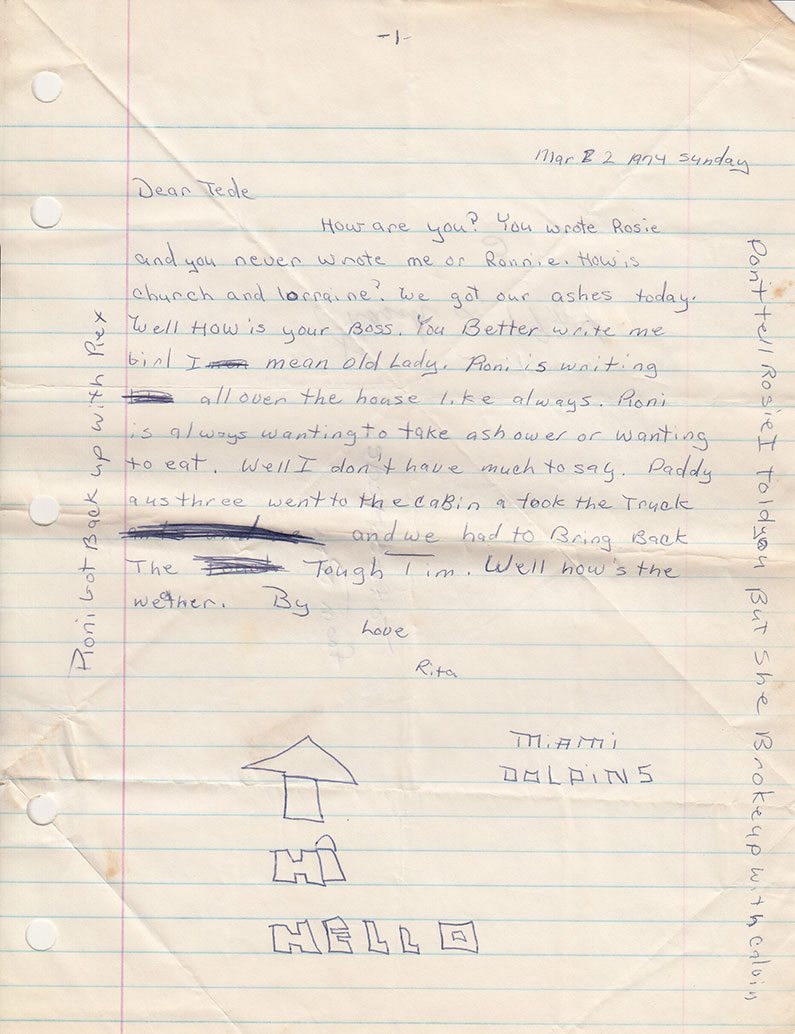 -1-
Mar 2 1974 Sunday
Dear Tede
How are you? You wrote Rosie
and you never wrote me or Ronnie. How is
church and lorraine? We got our ashes today.
Well How is your Boss. You Better write me
Girl I mean old Lady. Roni is writing
all over the house like always. Roni
is always wanting to take a shower or wanting
to eat. Well I don't have much to say. Daddy
a us three went to the caBin a took the Truck
and we had to Bring Back
The Tough Tim. Well how's the
wether. By
Love
Rita
Roni Got Back up with Rex
Don't tell Rosie I told you But she Broke up with Calvin
MiAMi
DOLPiNS
Hi
HELLO